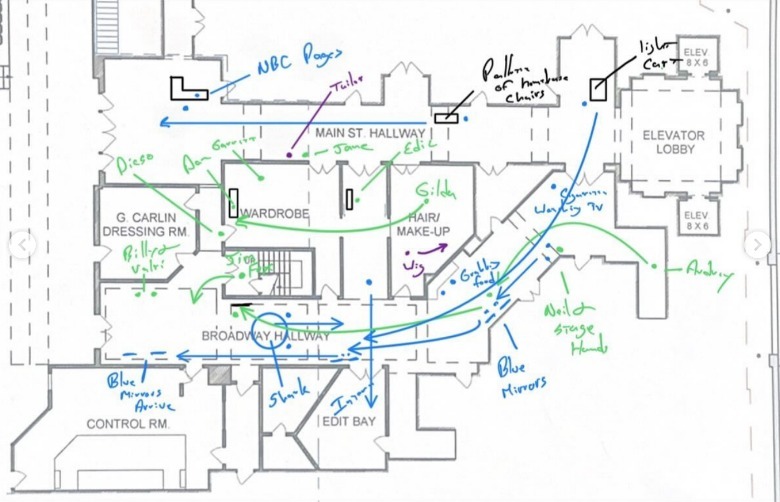 NBC Pages
Tailor
Platform
of homebase
Chairs
light
Cart
ELEV.
8 X 6
MAIN ST. HALLWAY
ELEVATOR
LOBBY
Garrett
Jane
Edie
Dan
Diego
G. CARLIN
DRESSING RM.
WARDROBE
Gilda
HAIR/
MAKE-UP
Wig
Working TV
ELEV.
8 X 6
Billy &
Valri
Grabbing
food
Audrey
Neil &
Stage
Hand
BROADWAY HALLWAY
Blue
Mirrors
Blue
Mirrors
Arrive
Shark
EDIT BAY
CONTROL RM.